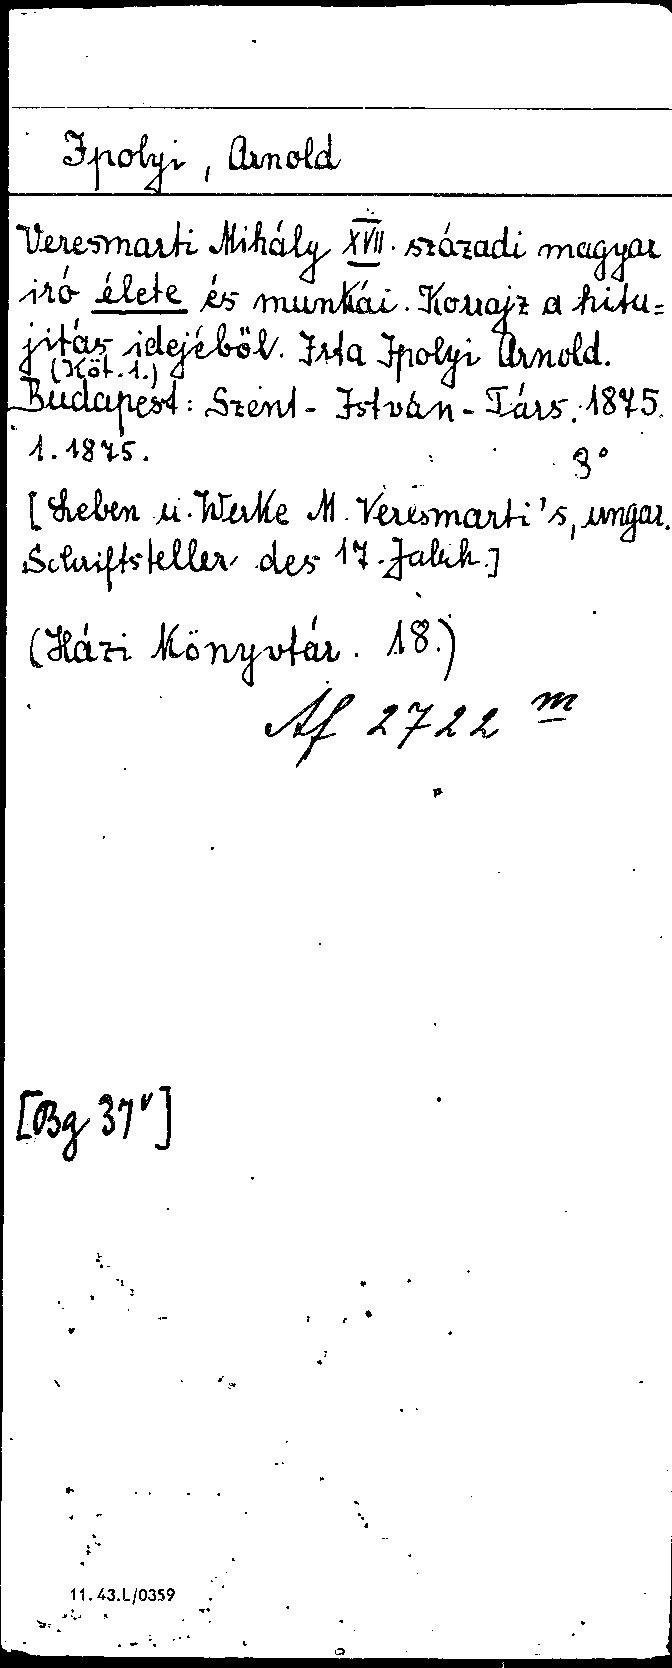 Ipolyi, Arnold
Veresmarti Mihály XVII. századi magyar
író élete és munkái. Korrajz a hitu=
jitás idejéből. Irta Ipolyi Arnold.
(Köt. 1.)
Budapest: Szent-István-Társ. 1875.
1. 1875.
8°
[Leben u. Werke M. Veresmarti's, ungar.
Schriftsteller des 17. Jahrh.]
(Házi Könyvtár. 18.)
Af 2722 m
[Bg 37v]
11.43.L/0359